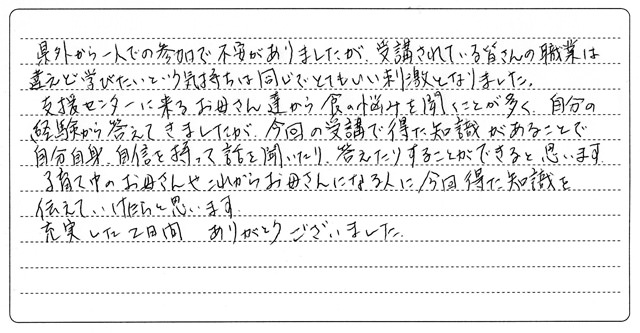 県外から一人での参加で不安がありましたが、受講されている皆さんの職業は
違えど学びたいという気持ちは同じでとてもいい刺激となりました。
支援センターに来るお母さん達から食の悩みを聞くことが多く、自分の
経験から答えてきましたが、今回の受講で得た知識があることで
自分自身、自信を持って話を聞いたり、答えたりすることができると思います
子育て中のお母さんやこれからお母さんになる人に今回得た知識を
伝えていけたらと思います。
充実した2日間 ありがとうございました。